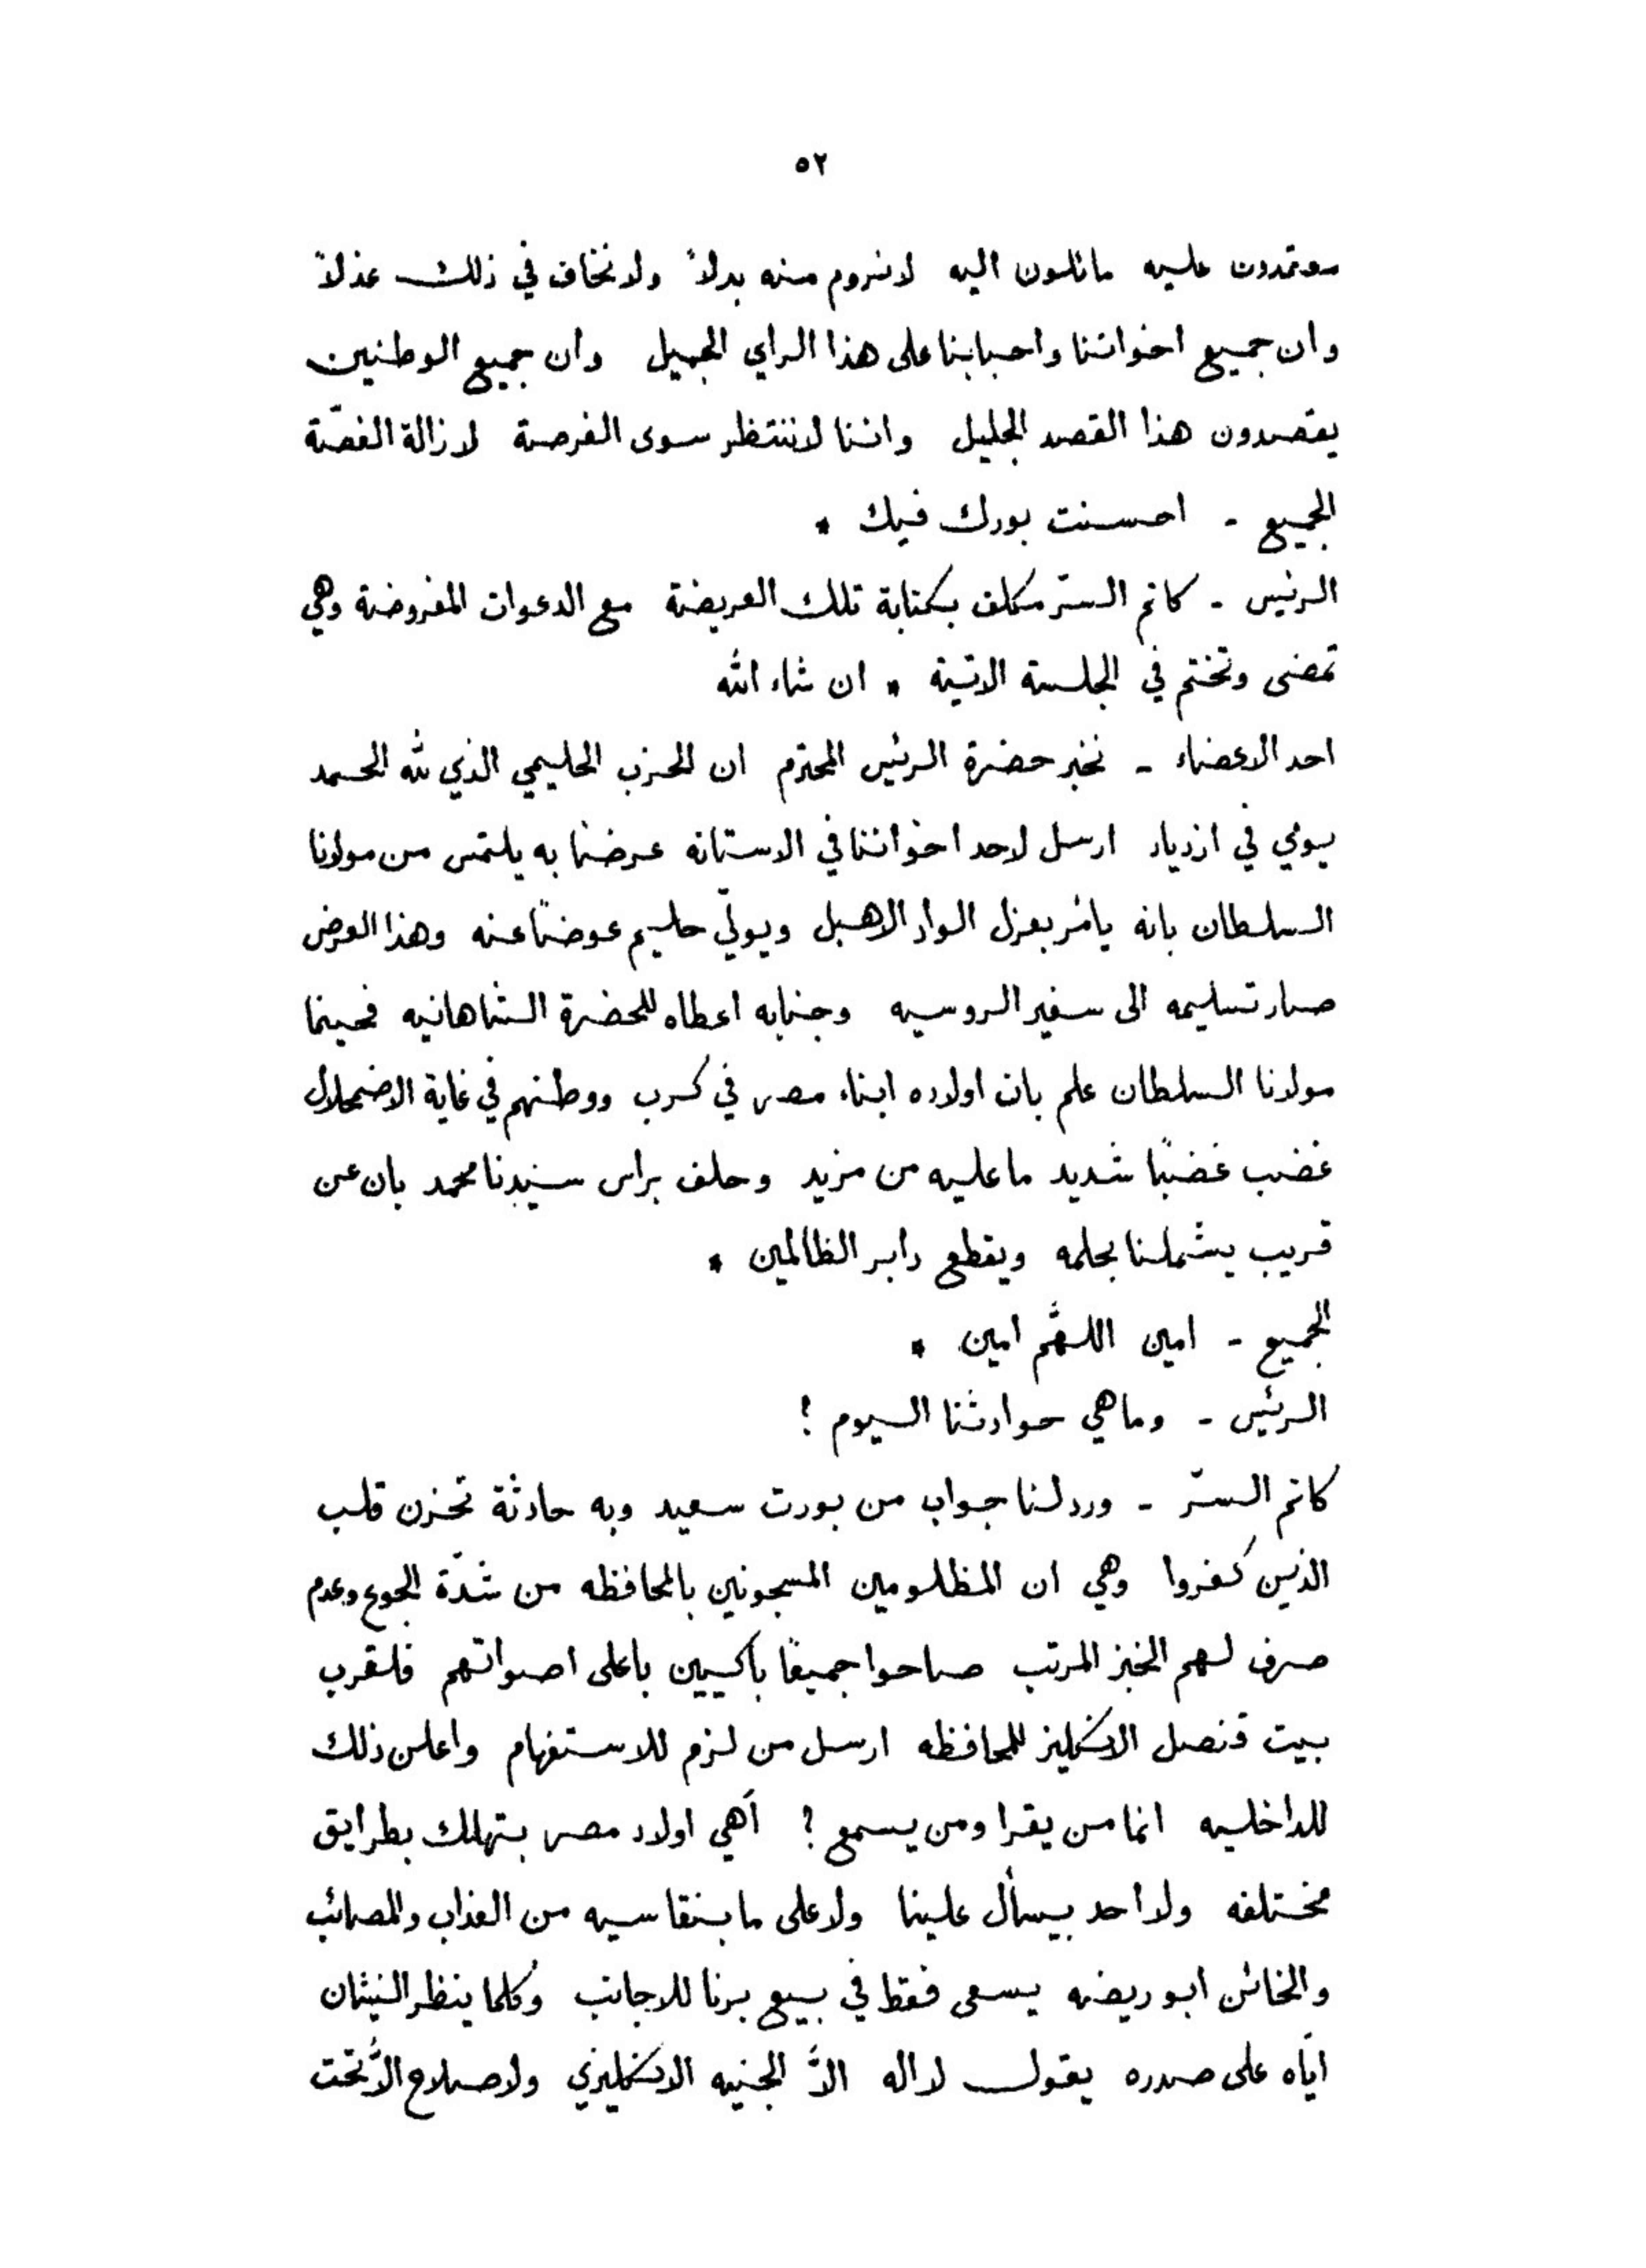 ٥٢
معتمدون عليه مائلون اليه لانروم منه بدلاً ولا نخاف في ذلك عذلاً
وان جميع اخواننا واحبابنا على هذا الراي الجميل وان جميع الوطنيين
يقصدون هذا القصد الجليل واننا لاننتظر سوى الفرصة لازالة الغصّة
الجميع - احسنت بورك فيك *
الرئيس - كاتم السرّ مكلف بكتابة تلك العريضة مع الدعوات المفروضة وهي
تمضى وتختم في الجلسة الاتية * ان شاء الله
احد الاعضاء - نخبر حضرة الرئيس المحترم ان الحزب الحليمي الذي لله الحمد
يومي في ازدياد ارسل لاحد اخواننا في الاستانه عرضًا به يلتمس من مولانا
السلطان بانه يأمر بعزل الواد الاهبل ويولّي حليم عوضًا عنه وهذا العرض
صار تسليمه الى سفير الروسيه وجنابه اعطاه للحضرة الشاهانيه فحينما
مولانا السلطان علم بان اولاده ابناء مصر في كرب ووطنهم في غاية الاضمحلال
غضب غضبًا شديد ما عليه من مزيد وحلف براس سيدنا محمد بان عن
قريب يشملنا بحلمه ويقطع دابر الظالمين *
الجميع - امين اللهمّ امين *
الرئيس - وما هي حوادثنا اليوم ؟
كاتم السرّ - ورد لنا جواب من بورت سعيد وبه حادثة تحزن قلب
الذين كفروا وهي ان المظلومين المسجونين بالمحافظه من شدّة الجوع وعدم
صرف لهم الخبز المرتب صاحوا جميعًا باكيين باعلى اصواتهم فلقرب
بيت قنصل الانكليز للمحافظه ارسل من لزم للاستفهام واعلن ذلك
للداخليه انما من يقرا ومن يسمع ؟ أهي اولاد مصر بتهلك بطرايق
مختلفه ولا احد بيسأل علينا ولا على ما بنقاسيه من العذاب والمصائب
والخائن ابو ريضه يسعى فقط في بيع برنا للاجانب وكلما ينظر النيشان
ايّاه على صدره يقول لا اله الاّ الجنيه الانكليزي ولا صلاح الاّ تحت